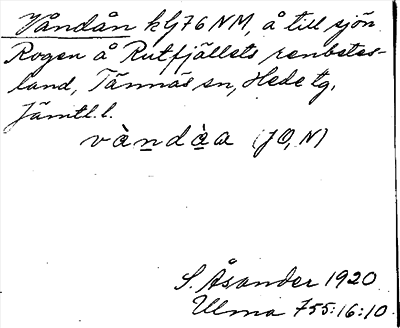 Våndån kG76NM, å till sjön
Rogen å Rutfjällets renbetes-
land, Tännäs sn, Hede tg,
Jämtl.l.
vàndàa (JO, N)
S. Åsander 1920
Ulma 755:16:10